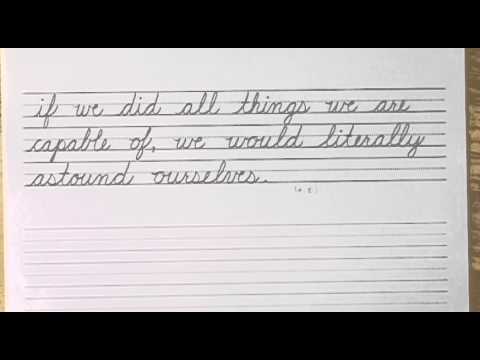 if we did all things we are
capable of, we would literally
astound ourselves.